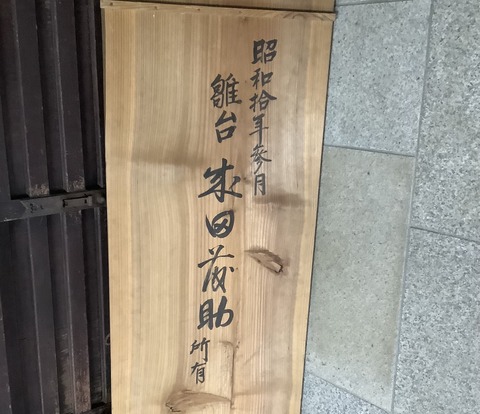 昭和拾年参月
雛台 成田茂助所有